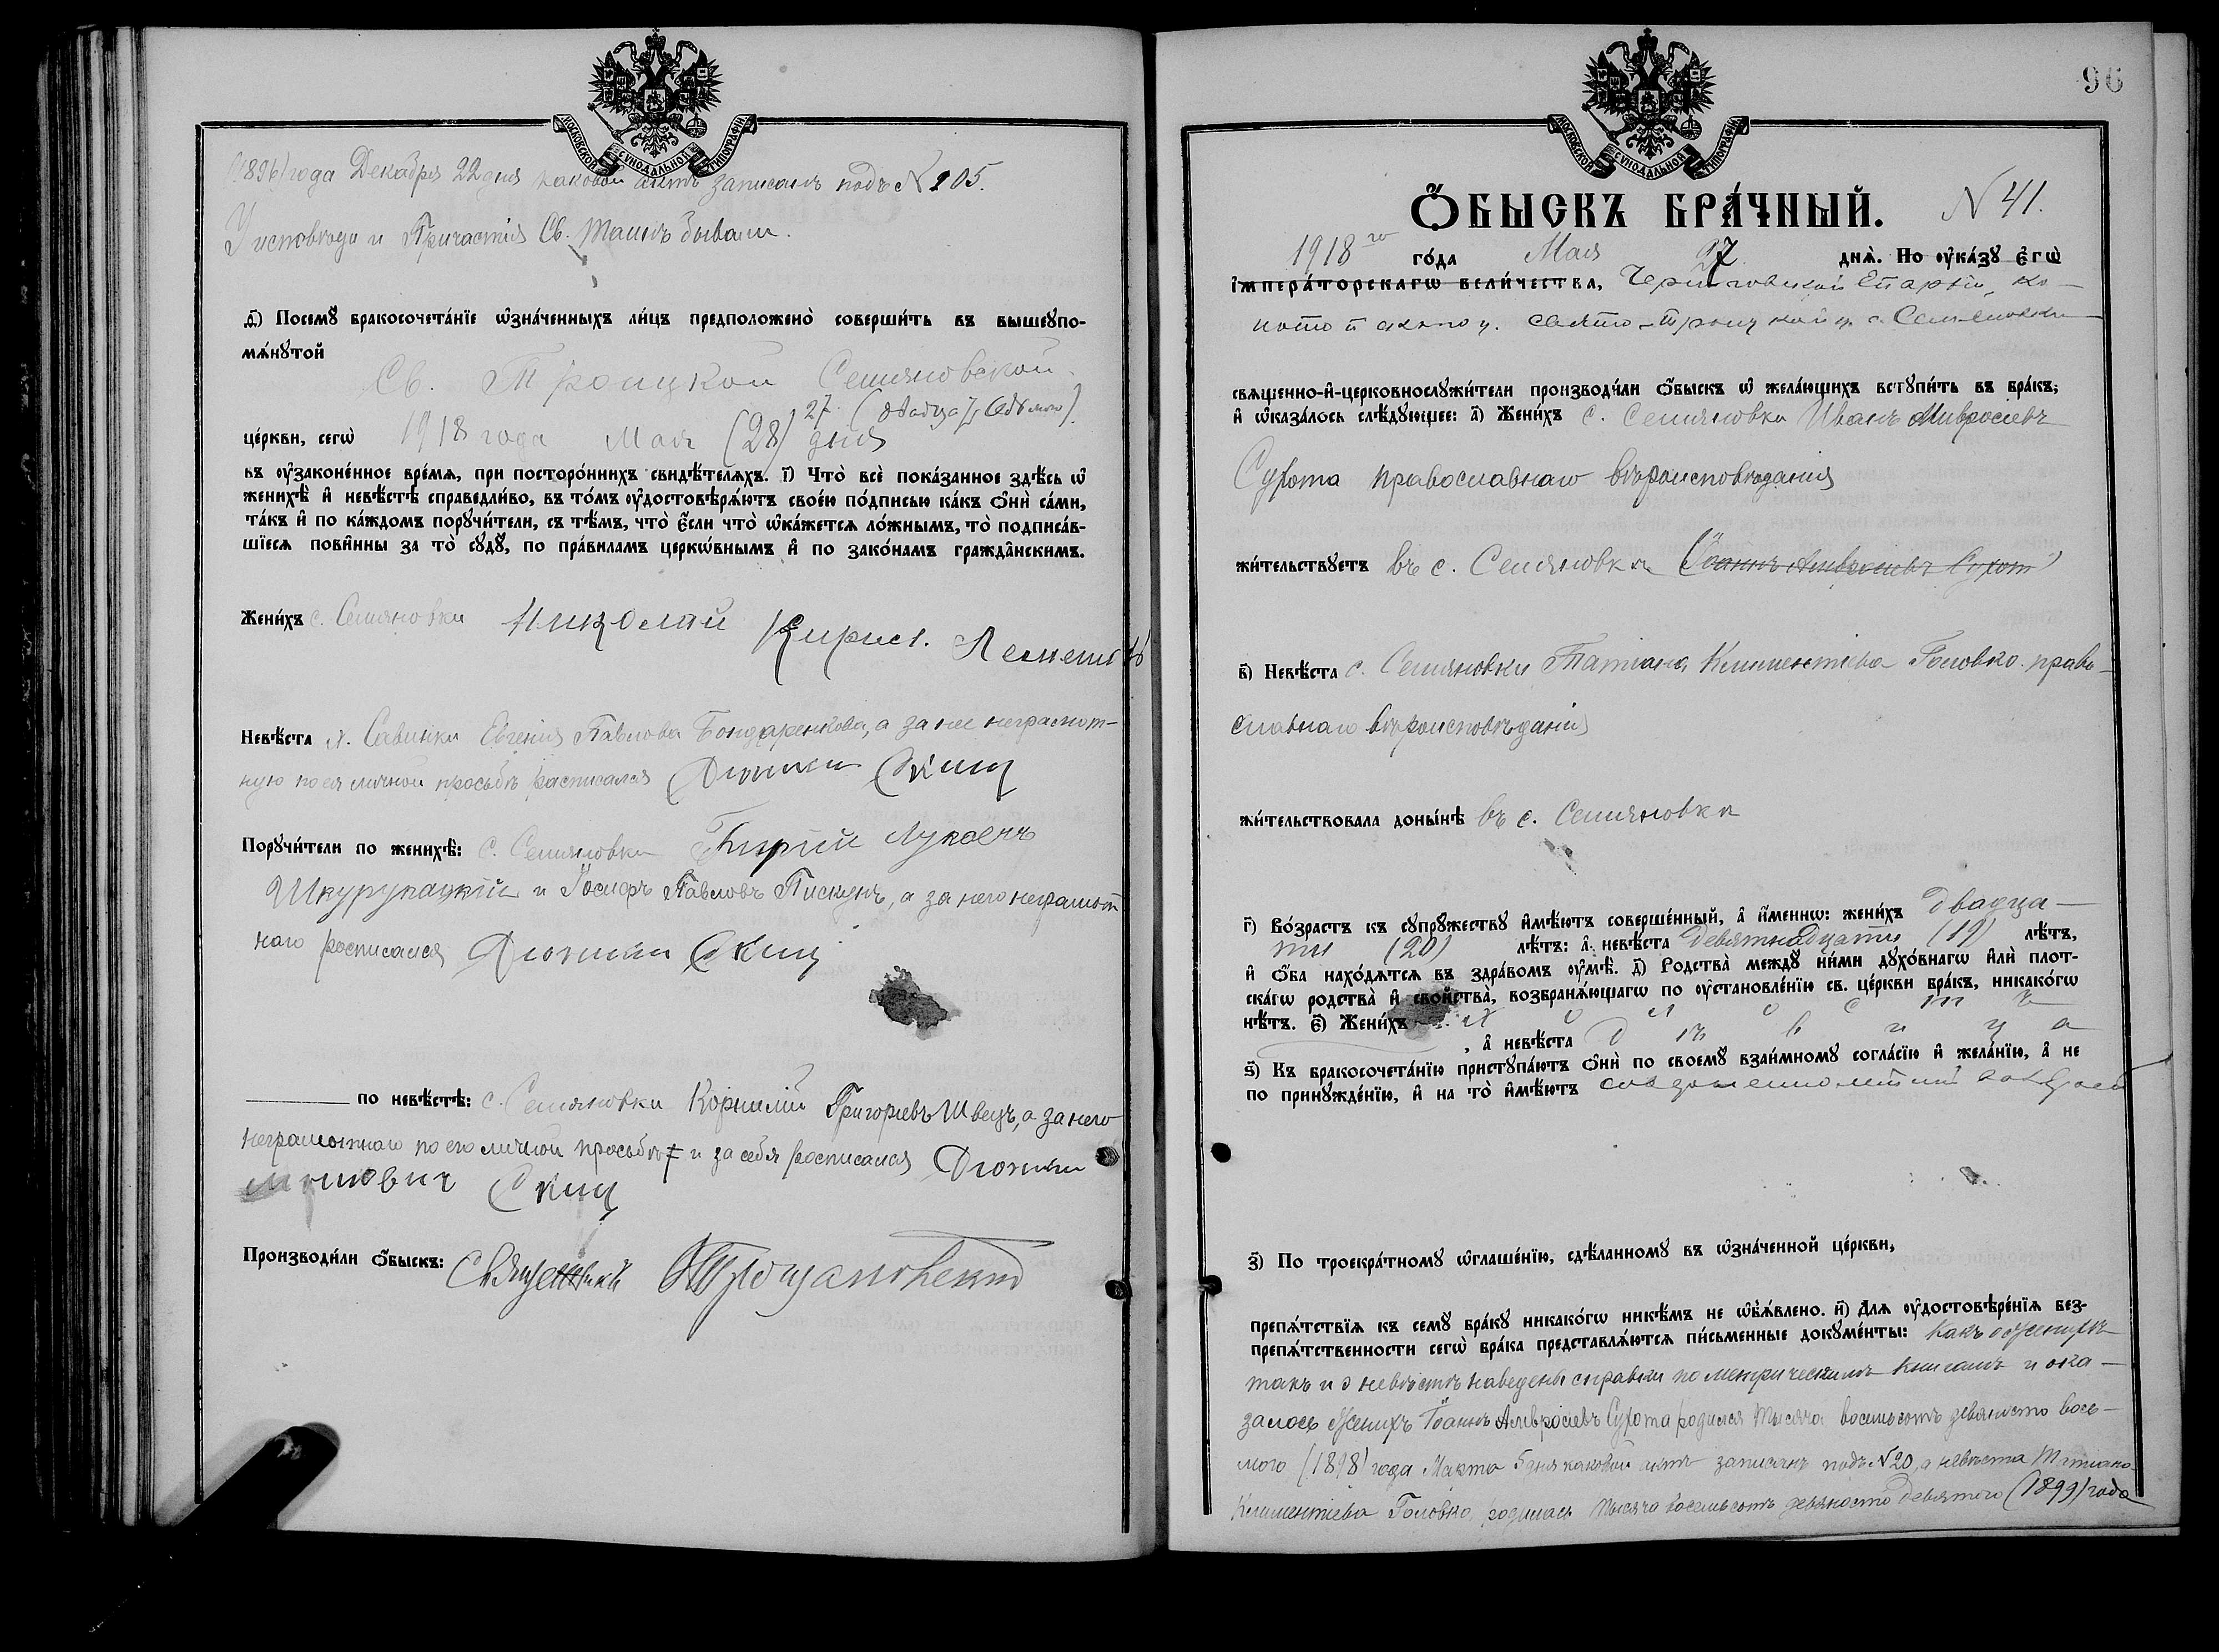 МОСКОВСКОЙ СУНОДАЛЬНОЙ ТИПОГРАФІИ
(1896) года Декабря 22 дня каковой актъ записанъ подъ № 105.
У исповѣди и Причастія Св. Таинъ бывали.
д҃) Посемꙋ бракосочета́нїе ѡ҆зна́ченныхъ ли́цъ предположено̀ соверши́ть въ вышеупо-
мѧ́нꙋтой
Св. Троицкой Семяновской
27 (двадцать седьмого).
це́ркви, сегѡ̀ 1918 года Мая (28) дня
въ ѹ҆законе́нное вре́мѧ, при посторо́ннихъ свидѣ́телѧхъ. і҃) Что̀ всѐ пока́занное здѣ́сь ѡ҆
женихѣ̀ и҆ невѣ́стѣ справедли́во, въ то́мъ ѹ҆достовѣрѧ́ютъ свое́ю по́дписью ка́къ ѻ҆нѝ са́ми,
та́къ и҆ по ка́ждомъ порꙋчи́тели, съ тѣ́мъ, что̀ є҆́сли что̀ ѡ҆ка́жетсѧ ло́жнымъ, то̀ подписа́в-
шїесѧ пови́нны за то̀ сꙋдꙋ̀, по пра́виламъ церкѡ́внымъ и҆ по зако́намъ гражда́нскимъ.
Жени́хъ с. Семяновки Николай Кирил.
Невѣ́ста х. Савинки Евгенія Павлова Бондаренкова, а за нее неграмот-
ную по ея личной просьбѣ расписался
Порꙋчи́тели по женихѣ̀: с. Семяновки
и Іосифъ Павловъ Пискунъ, а за него неграмот
наго росписался
по невѣ́стѣ: с. Семяновки Корнилій Григорьевъ Швецъ, а за него
неграмотнаго по его личной просьбѣ и за себя росписался
Производи́ли ѻ҆́быскъ: Священникъ
96
МОСКОВСКОЙ СУНОДАЛЬНОЙ ТИПОГРАФІИ
Ѻ҆́БЫСКЪ БРА́ЧНЫЙ. № 41.
1918 го го́да Мая 27 днѧ̀. По ѹ҆ка́зꙋ є҆гѡ̀
і҆мпера́торскагѡ вели́чества, Черниговской Епархіи, ко-
свято-троицкой ц. с. Семяновки
свѧще́нно-и҆-церковнослꙋжи́тели производи́ли ѻ҆́быскъ ѡ҆ жела́ющихъ встꙋпи́ть въ бра́къ,
и҆ ѡ҆каза́лось слѣ́дꙋющее: а҃) Жени́хъ с. Семяновки Иванъ Амвросіевъ
Сухота православнаго вѣроисповѣданія
жи́тельствꙋетъ въ с. Семяновкѣ (Іоаннъ Амвросіевъ Сухота)
в҃) Невѣ́ста с. Семяновки Татіана Климентіева Головко право-
славнаго вѣроисповѣданія
жи́тельствовала доны́нѣ въ с. Семяновкѣ
г҃) Во́зрастъ къ сꙋпрꙋ́жествꙋ и҆мѣ́ютъ соверше́нный, а҆ и҆́меннѡ: жени́хъ двадца-
ти (20) лѣ́тъ: а҆ невѣ́ста девятнадцати (19) лѣ́тъ,
и҆ ѻ҆́ба нахо́дѧтсѧ въ здра́вомъ ѹ҆мѣ̀. д҃) Родства̀ междꙋ̀ ни́ми дꙋхо́внагѡ и҆лѝ плот-
ска́гѡ родства̀ и҆ свойства̀, возбранѧ́ющагѡ по ѹ҆становле́нїю св. це́ркви бра́къ, никако́гѡ
нѣ́тъ. є҃) Жени́хъ холостъ
, а҆ невѣ́ста дѣвица
ѕ҃) Къ бракосочета́нїю пристꙋпа́ютъ ѻ҆нѝ по своемꙋ̀ взаи́мномꙋ согла́сїю и҆ жела́нїю, а҆ не
по принꙋжде́нїю, и҆ на то̀ и҆мѣ́ютъ
з҃) По троекра́тномꙋ ѡ҆глаше́нїю, сдѣ́ланномꙋ въ ѡ҆зна́ченной це́ркви,
препѧ́тствїѧ къ семꙋ̀ бра́кꙋ никако́гѡ никѣ́мъ не ѡ҆б̾ѧ́влено. и҃) Длѧ ѹ҆достовѣре́нїѧ без-
препѧ́тственности сегѡ̀ бра́ка представлѧ́ютсѧ пи́сьменные докꙋме́нты: какъ о женихѣ
такъ и о невѣстѣ наведены справки по метрическимъ книгамъ и ока-
залось Женихъ Іоаннъ Амвросіевъ Сухота родился тысяча восемьсотъ девяносто вось-
мого (1898) года Марта 5 дня каковой актъ записанъ подъ № 20, а невѣста Татіана
Климентіева Головко, родилась тысяча восемьсотъ девяносто девятого (1899) года